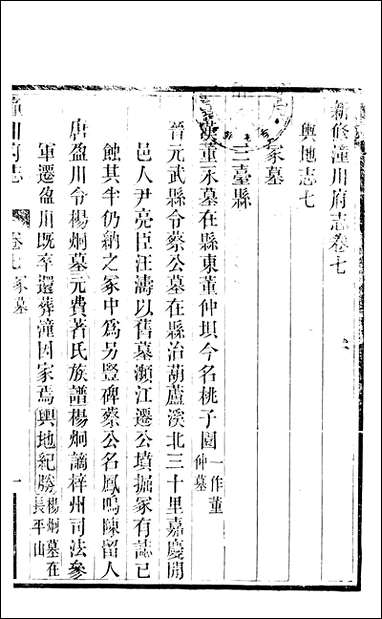 新修潼川府志卷七
輿地志七
冢墓
三臺縣
漢董永墓在縣東董仲垻今名桃子園一作董仲墓
晉元武縣令蔡公墓在縣治葫蘆溪北三十里嘉慶閒
邑人尹亮臣汪濤以舊墓瀕江遷公墳掘冢有誌已
蝕其半仍納之冢中爲另豎碑蔡公名鳳鳴陳留人
唐盈川令楊炯墓元費著氏族譜楊炯謫梓州司法參
軍遷盈川旣卒還葬潼因家焉輿地紀勝楊炯墓在長平山
潼川府志
卷七冢墓
一